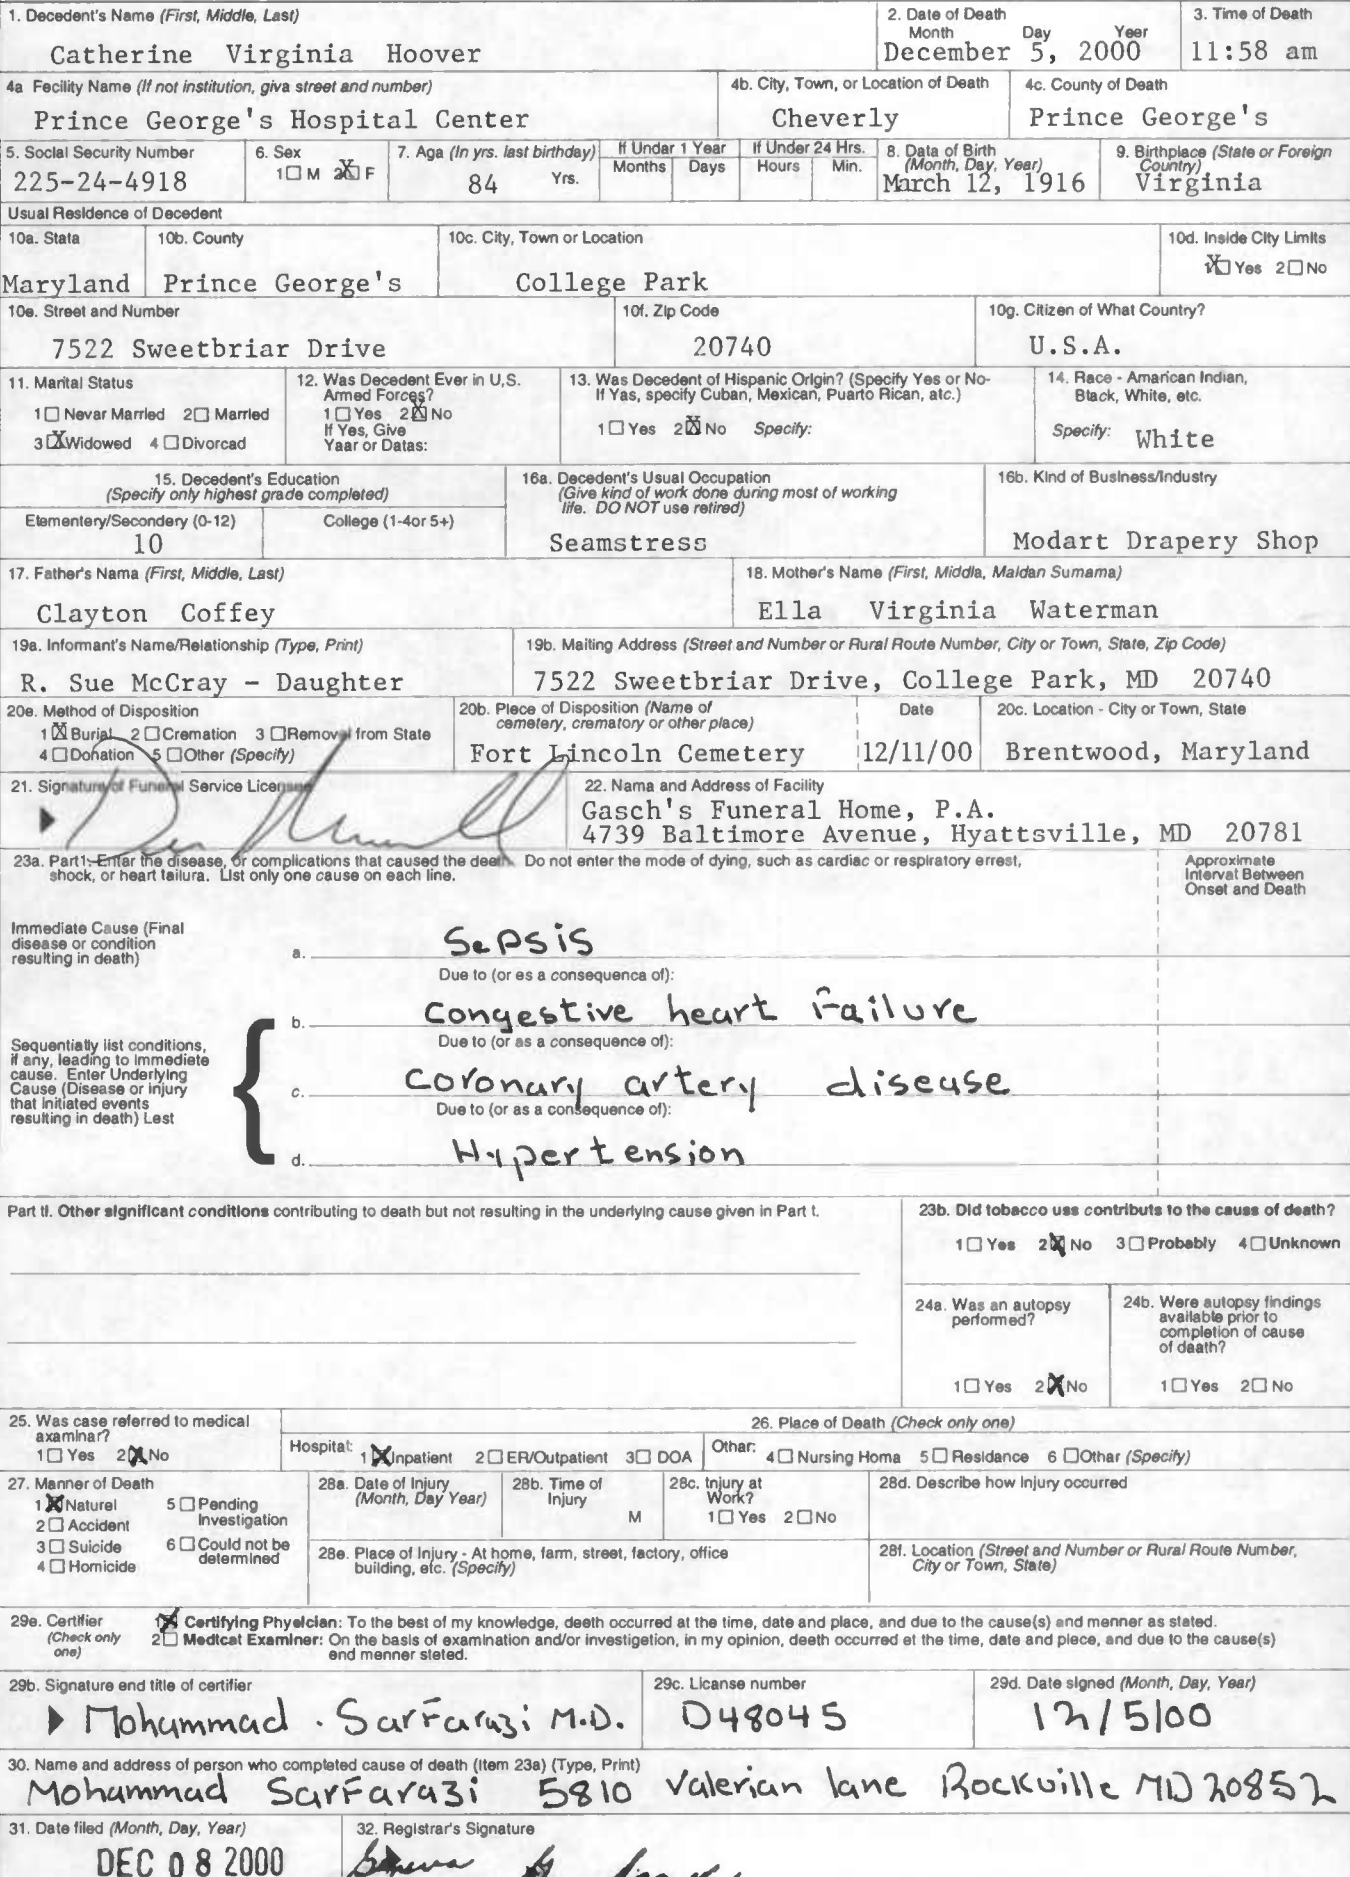 1. Decedent's Name (First, Middle, Last)
Catherine Virginia Hoover
2. Date of Death
Month Day Year
December 5, 2000
3. Time of Death
11:58 am
4a Facility Name (If not institution, give street and number)
Prince George's Hospital Center
4b. City, Town, or Location of Death
Cheverly
4c. County of Death
Prince George's
5. Social Security Number
225-24-4918
6. Sex
1☐ M 2☒ F
7. Age (In yrs. last birthday)
84 Yrs.
If Under 1 Year
Months Days
If Under 24 Hrs.
Hours Min.
8. Date of Birth
(Month, Day, Year)
March 12, 1916
9. Birthplace (State or Foreign
Country)
Virginia
Usual Residence of Decedent
10a. State
Maryland
10b. County
Prince George's
10c. City, Town or Location
College Park
10d. Inside City Limits
1☒ Yes 2☐ No
10e. Street and Number
7522 Sweetbriar Drive
10f. Zip Code
20740
10g. Citizen of What Country?
U.S.A.
11. Marital Status
1☐ Never Married 2☐ Married
3☒ Widowed 4☐ Divorced
12. Was Decedent Ever in U.S.
Armed Forces?
1☐ Yes 2☒ No
If Yes, Give
Year or Dates:
13. Was Decedent of Hispanic Origin? (Specify Yes or No-
If Yes, specify Cuban, Mexican, Puerto Rican, etc.)
1☐ Yes 2☒ No Specify:
14. Race - American Indian,
Black, White, etc.
Specify: White
15. Decedent's Education
(Specify only highest grade completed)
Elementary/Secondary (0-12)
10
College (1-4or 5+)
16a. Decedent's Usual Occupation
(Give kind of work done during most of working
life. DO NOT use retired)
Seamstress
16b. Kind of Business/Industry
Modart Drapery Shop
17. Father's Name (First, Middle, Last)
Clayton Coffey
18. Mother's Name (First, Middle, Maiden Surname)
Ella Virginia Waterman
19a. Informant's Name/Relationship (Type, Print)
R. Sue McCray - Daughter
19b. Mailing Address (Street and Number or Rural Route Number, City or Town, State, Zip Code)
7522 Sweetbriar Drive, College Park, MD 20740
20a. Method of Disposition
1☒ Burial 2☐ Cremation 3☐ Removal from State
4☐ Donation 5☐ Other (Specify)
20b. Place of Disposition (Name of
cemetery, crematory or other place)
Fort Lincoln Cemetery
Date
12/11/00
20c. Location - City or Town, State
Brentwood, Maryland
21. Signature of Funeral Service Licensee
22. Name and Address of Facility
Gasch's Funeral Home, P.A.
4739 Baltimore Avenue, Hyattsville, MD 20781
23a. Part1: Enter the disease, or complications that caused the death. Do not enter the mode of dying, such as cardiac or respiratory arrest,
shock, or heart failure. List only one cause on each line.
Approximate
Interval Between
Onset and Death
Immediate Cause (Final
disease or condition
resulting in death)
a. Sepsis
Due to (or as a consequence of):
b. Congestive heart failure
Due to (or as a consequence of):
Sequentially list conditions,
if any, leading to immediate
cause. Enter Underlying
Cause (Disease or injury
that initiated events
resulting in death) Last
c. Coronary artery disease
Due to (or as a consequence of):
d. Hypertension
Part II. Other significant conditions contributing to death but not resulting in the underlying cause given in Part I.
23b. Did tobacco use contribute to the cause of death?
1☐ Yes 2☒ No 3☐ Probably 4☐ Unknown
24a. Was an autopsy
performed?
1☐ Yes 2☒ No
24b. Were autopsy findings
available prior to
completion of cause
of death?
1☐ Yes 2☐ No
25. Was case referred to medical
examiner?
1☐ Yes 2☒ No
26. Place of Death (Check only one)
Hospital: 1☒ Inpatient 2☐ ER/Outpatient 3☐ DOA
Other: 4☐ Nursing Home 5☐ Residence 6☐ Other (Specify)
27. Manner of Death
1☒ Natural 5☐ Pending
Investigation
2☐ Accident
3☐ Suicide 6☐ Could not be
determined
4☐ Homicide
28a. Date of Injury
(Month, Day Year)
28b. Time of
Injury
M
28c. Injury at
Work?
1☐ Yes 2☐ No
28d. Describe how Injury occurred
28e. Place of Injury - At home, farm, street, factory, office
building, etc. (Specify)
28f. Location (Street and Number or Rural Route Number,
City or Town, State)
29a. Certifier
(Check only
one)
1☒ Certifying Physician: To the best of my knowledge, death occurred at the time, date and place, and due to the cause(s) and manner as stated.
2☐ Medical Examiner: On the basis of examination and/or investigation, in my opinion, death occurred at the time, date and place, and due to the cause(s)
and manner stated.
29b. Signature and title of certifier
Mohammad . Sarfarazi M.D.
29c. License number
D48045
29d. Date signed (Month, Day, Year)
12/5/00
30. Name and address of person who completed cause of death (Item 23a) (Type, Print)
Mohammad Sarfarazi 5810 Valerian lane Rockville MD 20852
31. Date filed (Month, Day, Year)
DEC 08 2000
32. Registrar's Signature